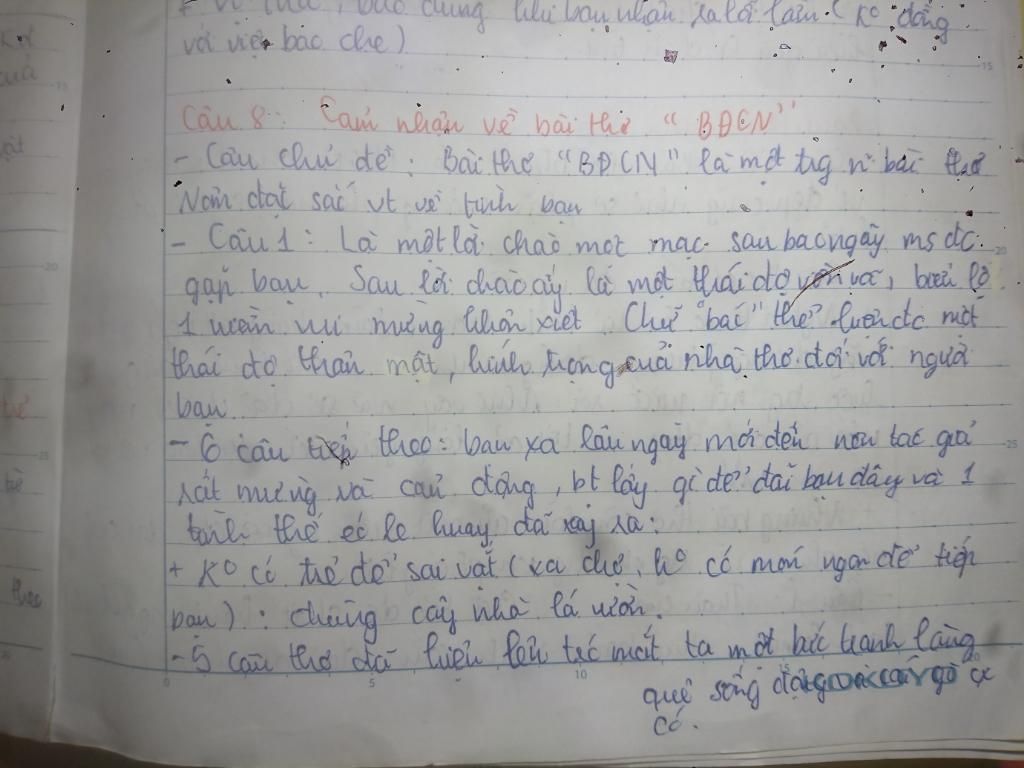 + Vị tha, bao dung khi bạn nhận ra lỗi lầm. (Ko đồng
với việc bao che)
Câu 8: Cảm nhận về bài thơ "BĐCN"
- Câu chủ đề: Bài thơ "BĐCN" là một trg n~ bài thơ
Nôm đặt sắc vt về tình bạn
- Câu 1: Là một lời chào mọt mạc sau bao ngày ms đc
gặp bạn. Sau lời chào ấy là một thái độ vồn vã, biểu lộ
1 niềm vui mừng khôn xiết. Chữ "bác" thể luôn đc một
thái độ thân mật, kính trọng của nhà thơ đối với người
bạn.
- 6 câu tiếp theo: bạn xa lâu ngày mới đến nên tác giả
rất mừng và cảm động, bt lấy gì để đãi bạn đây và 1
tình thế éo le huay đã xảy ra:
+ Ko có trẻ để sai vặt (xa chợ, ko có món ngon để tiếp
bạn): chung cây nhà lá vườn.
- 5 câu thơ đã hiện lên trc mắt ta một bức tranh làng
quê sống
có.
theo